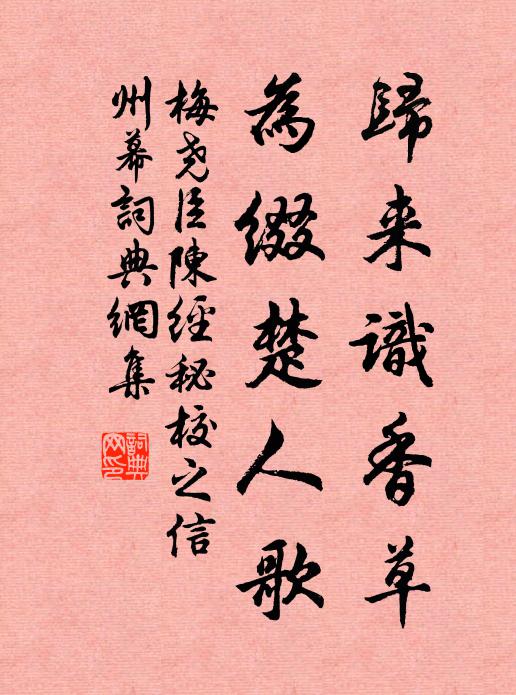 歸来識香草
為綴楚人歌
梅尧臣陳經秘校之信
州幕詞典網集
詞典网印